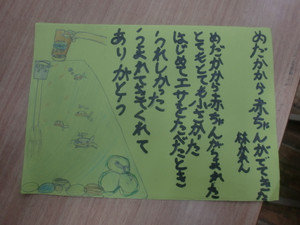 めだかから赤ちゃんがでてきた
林かれん
めだかから赤ちゃんがうまれた
とてもとても小さかった
はじめてエサをたべたとき
うれしかった
うまれてきてくれて
ありがとう